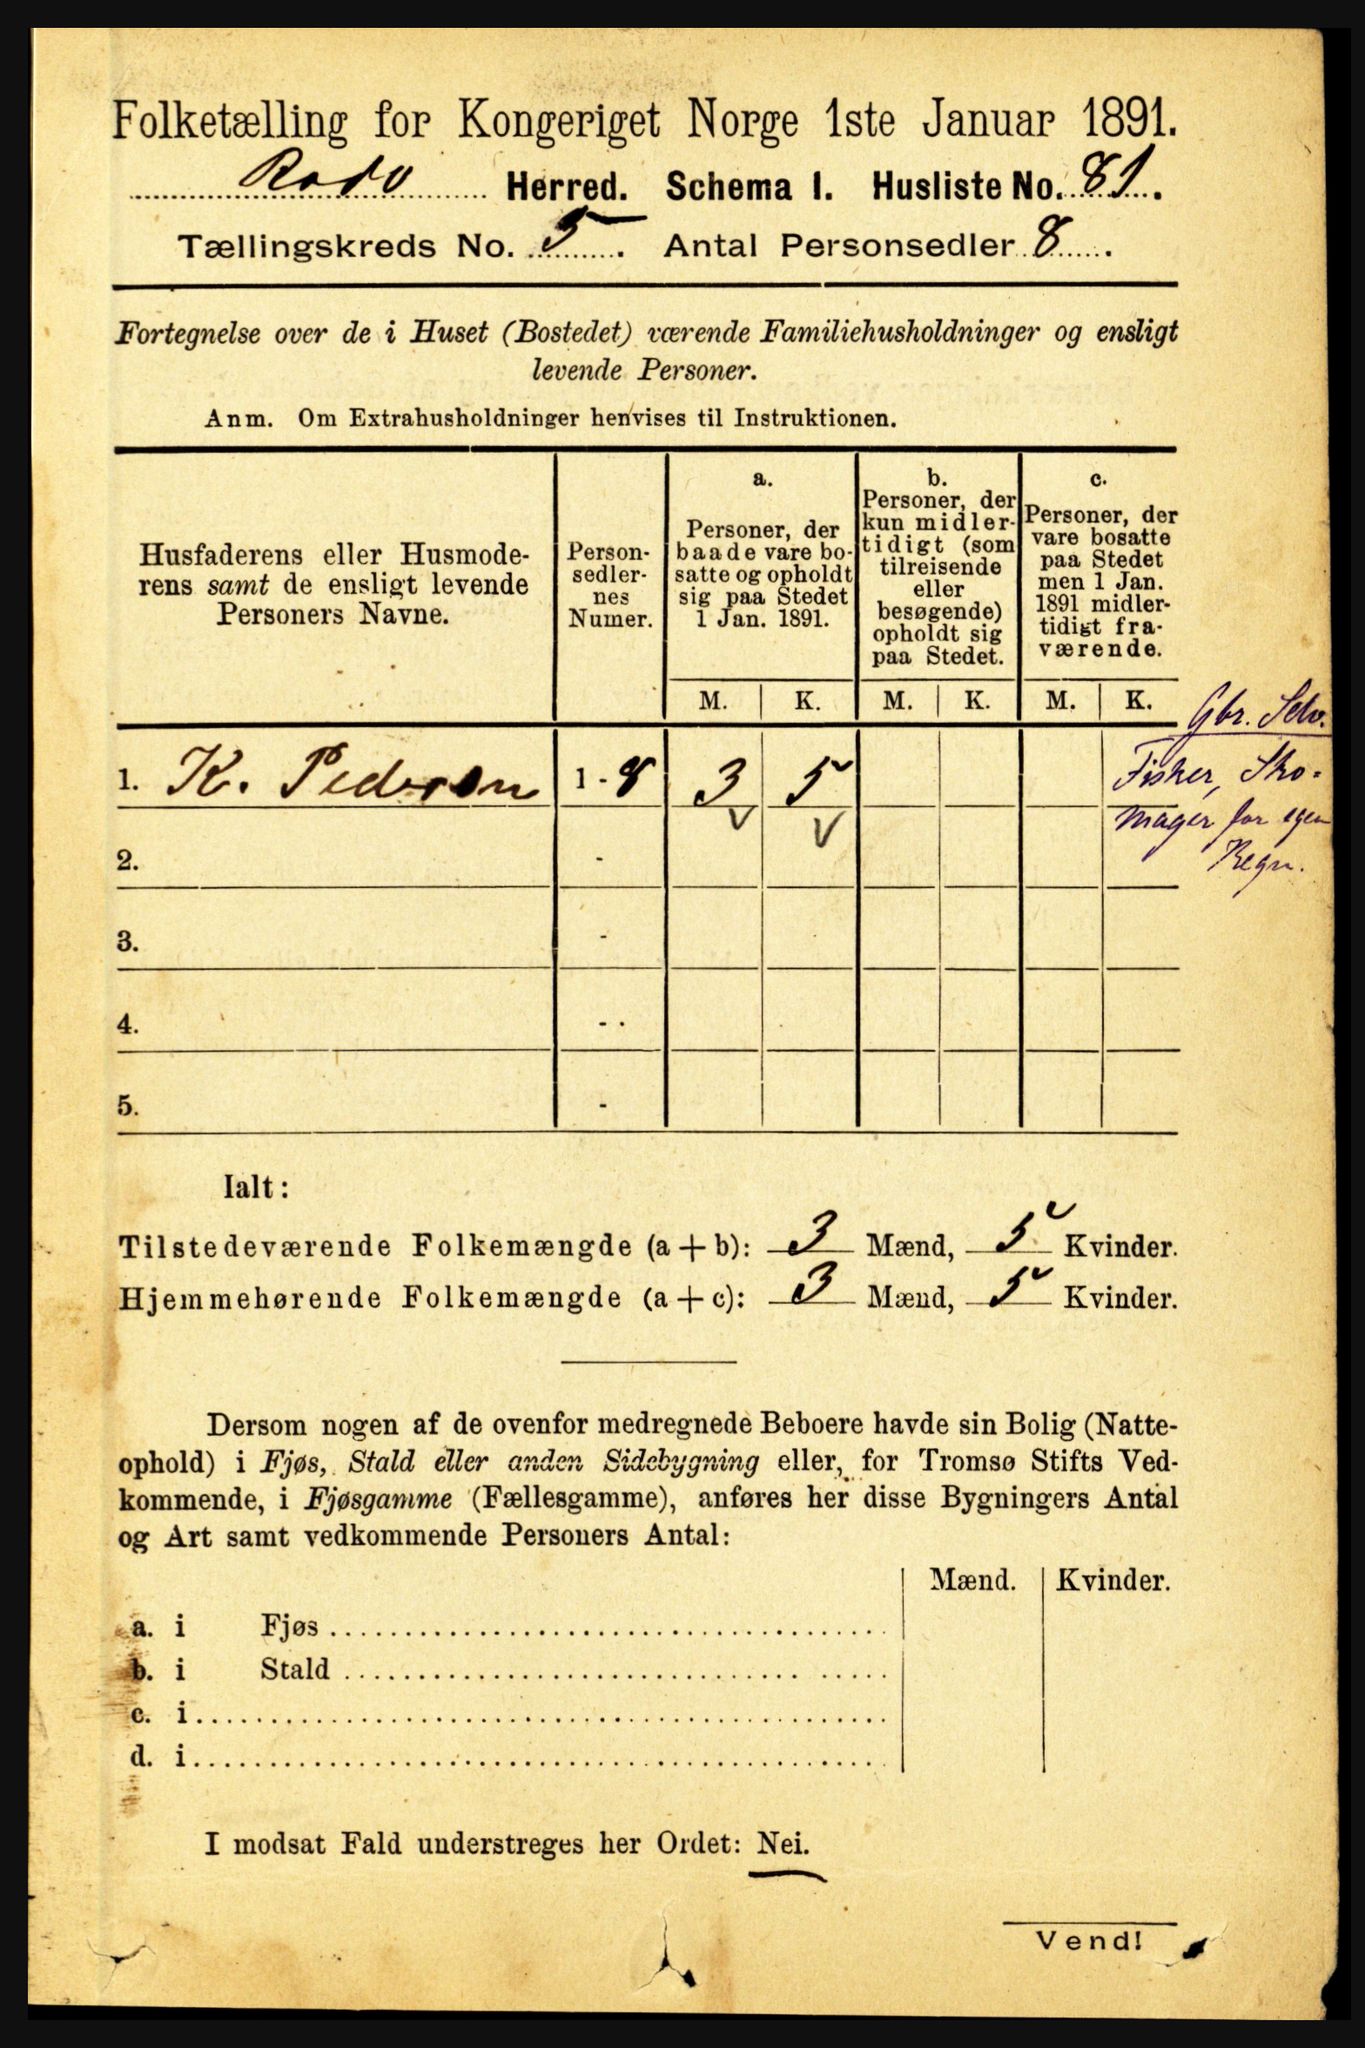 Folketælling for Kongeriget Norge 1ste Januar 1891.
Rodø Herred. Schema I. Husliste No. 81.
Tællingskreds No. 5. Antal Personsedler 8.
Fortegnelse over de i Huset (Bostedet) værende Familiehusholdninger og ensligt
levende Personer.
Anm. Om Extrahusholdninger henvises til Instruktionen.
Husfaderens eller Husmode-
rens samt de ensligt levende
Personers Navne.
Person-
sedler-
nes
Numer.
a.
Personer, der
baade vare bo-
satte og opholdt
sig paa Stedet
1 Jan. 1891.
b.
Personer, der
kun midler-
tidigt (som
tilreisende
eller
besøgende)
opholdt sig
paa Stedet.
c.
Personer, der
vare bosatte
paa Stedet
men 1 Jan.
1891 midler-
tidigt fra-
værende.
M. K. M. K. M. K.
Gbr. Selv.
Fisker, Sko-
mager for egen
Regn.
1. K. Pedersen 1 - 8 3 5
2. -
3. -
4. -
5. -
Ialt:
Tilstedeværende Folkemængde (a + b): 3 Mænd, 5 Kvinder.
Hjemmehørende Folkemængde (a + c): 3 Mænd, 5 Kvinder.
Dersom nogen af de ovenfor medregnede Beboere havde sin Bolig (Natte-
ophold) i Fjøs, Stald eller anden Sidebygning eller, for Tromsø Stifts Ved-
kommende, i Fjøsgamme (Fællesgamme), anføres her disse Bygningers Antal
og Art samt vedkommende Personers Antal:
Mænd. Kvinder.
a. i Fjøs
b. i Stald
c. i
d. i
I modsat Fald understreges her Ordet: Nei.
Vend!